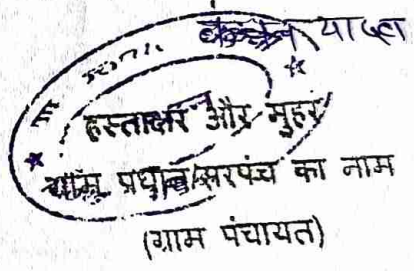 यादव
हस्ताक्षर और मुहर
ग्राम प्रधान/सरपंच का नाम
(ग्राम पंचायत)